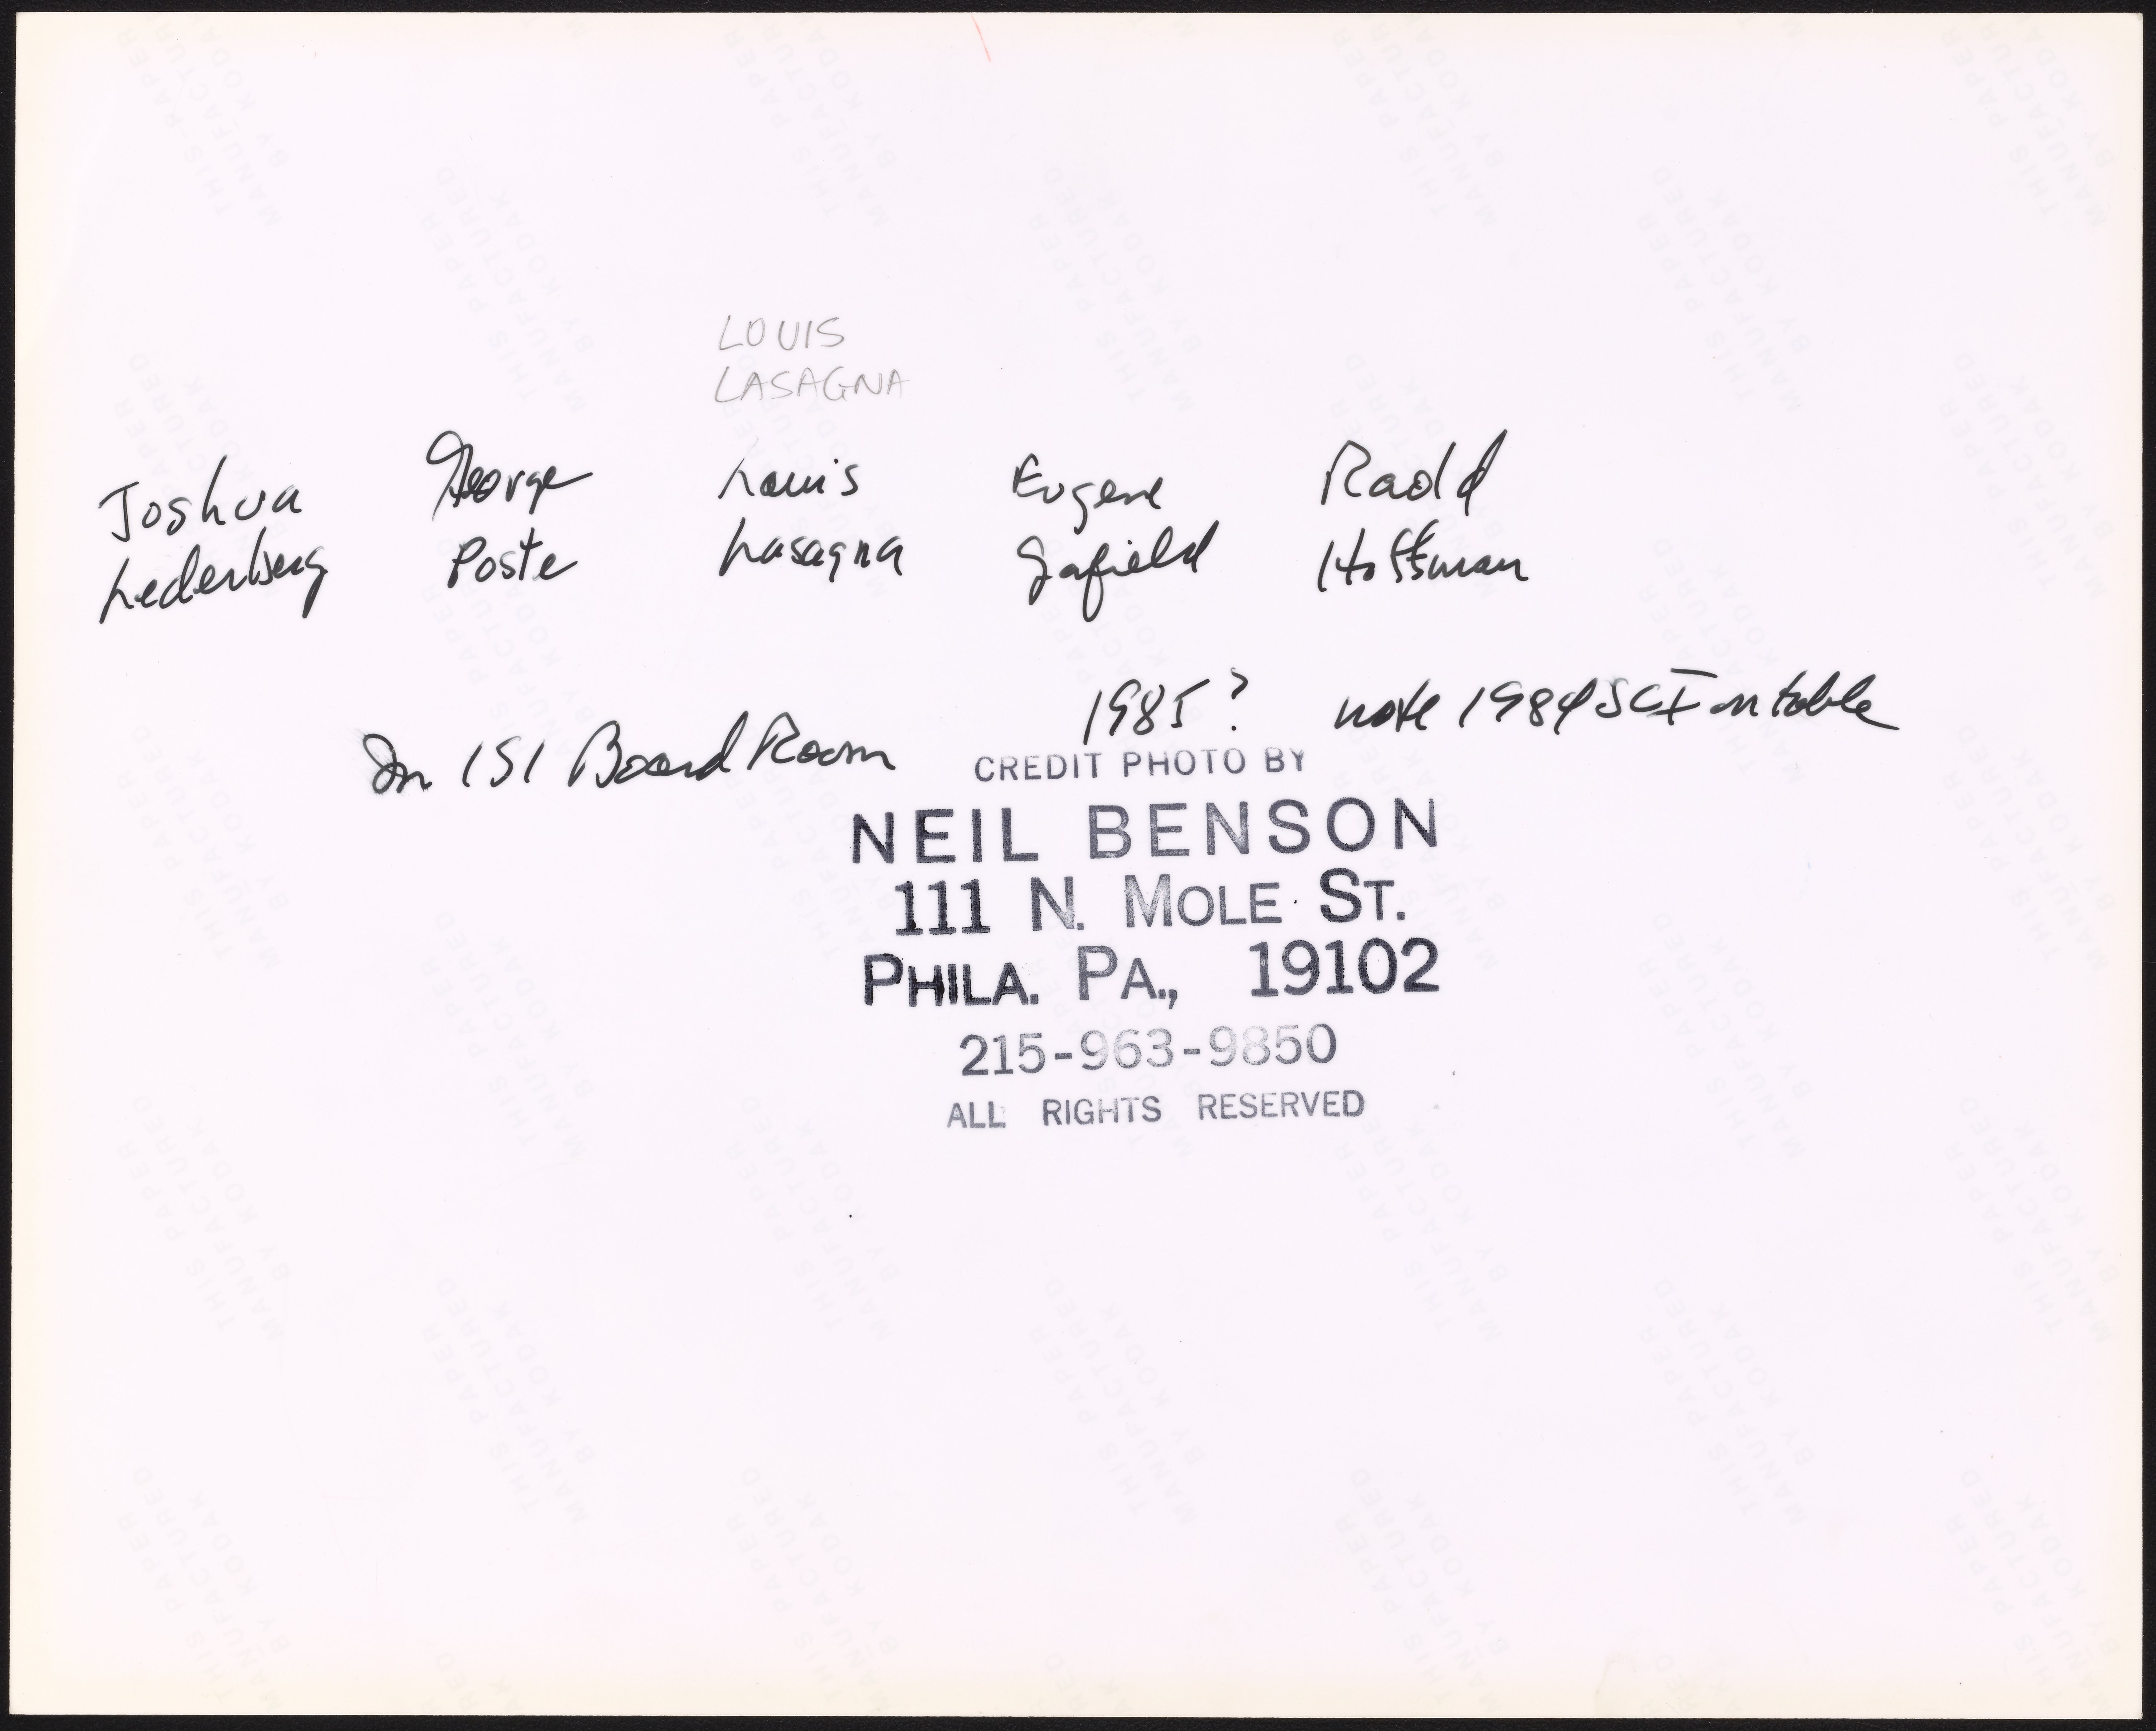 LOUIS
LASAGNA
Joshua George Louis Eugene Raold
Lederberg Poste Lasagna Garfield Hoffman
1985? note 1984 SCI on table
In ISI Board Room
CREDIT PHOTO BY
NEIL BENSON
111 N. MOLE ST.
PHILA. PA., 19102
215-963-9850
ALL RIGHTS RESERVED
THIS PAPER
MANUFACTURED
BY KODAK